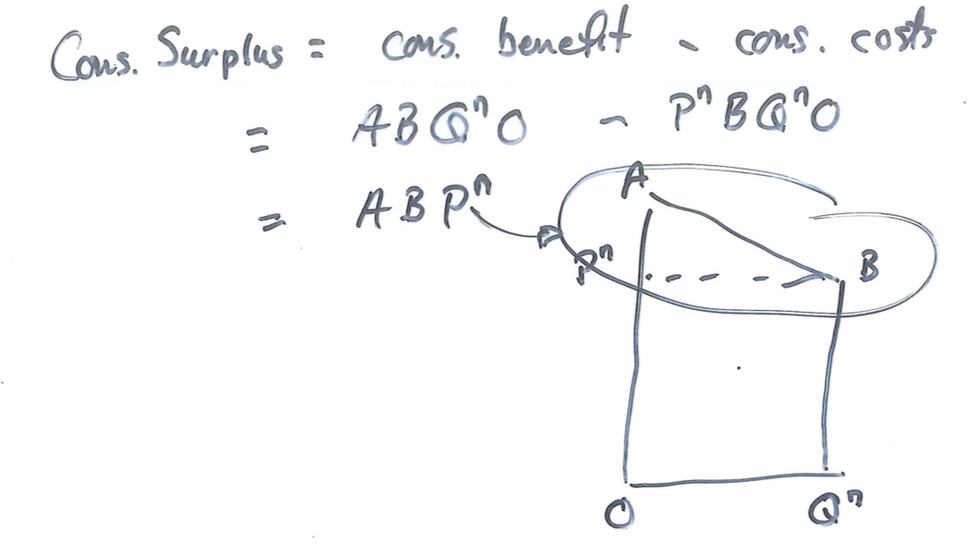 Cons. Surplus = cons. benefit - cons. costs
= ABQⁿO - PⁿBQⁿO
= ABPⁿ
A
Pⁿ
B
O
Qⁿ